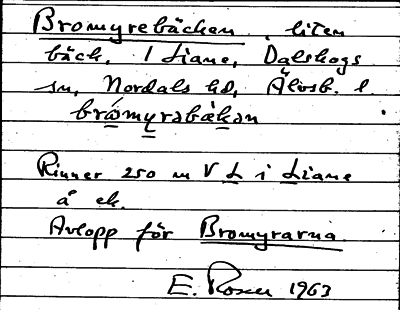 Bromyrebäcken, liten
bäck, i Liane, Dalskogs
sn, Nordals hd, Älvsb. l.
bromyrabäkən
Rinner 250 m V L i Liane
å ek.
Avlopp för Bromyrarna.
E. Rosen 1963